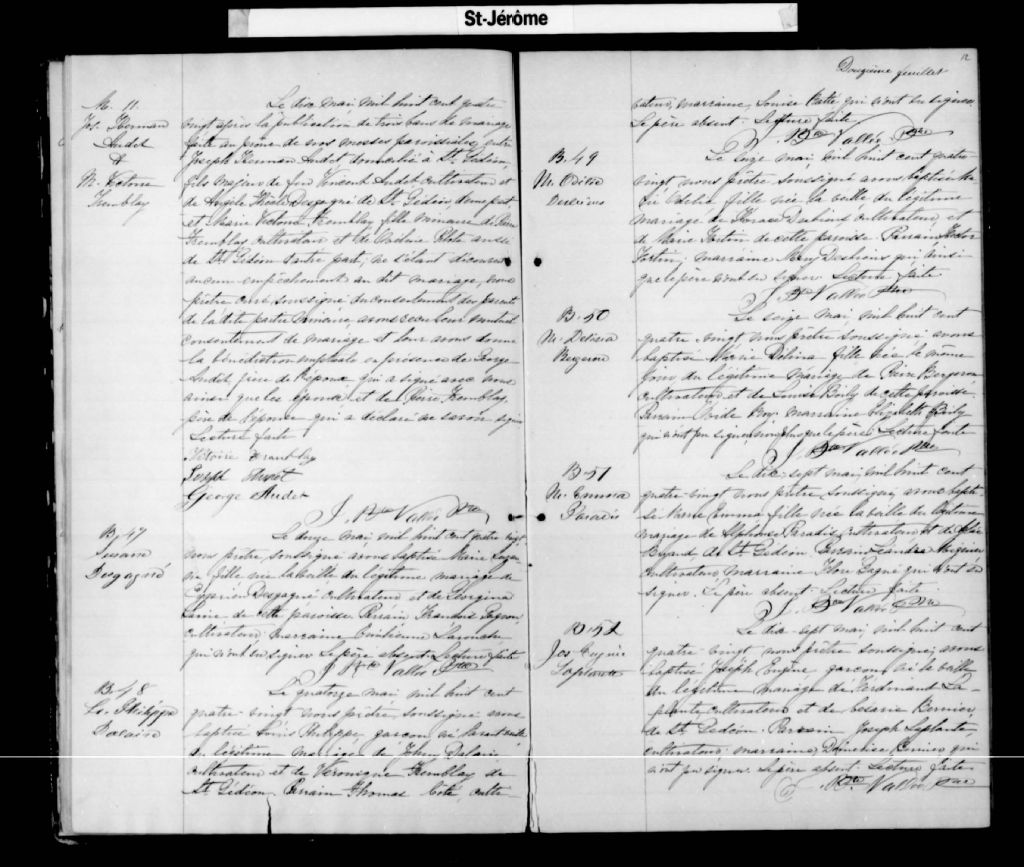 St-Jérôme
M. 11.
Jos. Herman
Audet
&
M. Victoria
Tremblay
Le dix mai mil huit cent quatre
vingt après la publication de trois bans de mariage
faite au prône de nos messes paroissiales, entre
Joseph Herman Audet domicilié à St. Gédéon,
fils majeur de feu Vincent Audet cultivateur et
de Desgagné de St. Gédéon d'une part
et Marie Victoria Tremblay fille mineure de Pierre
Tremblay cultivateur et de Côté aussi
de St. Gédéon d'autre part; ne s'étant découvert
aucun empêchement au dit mariage, nous
prêtre curé soussigné du consentement des parents
de la dite partie mineure, avons reçu leur mutuel
consentement de mariage et leur avons donné
la bénédiction nuptiale en présence de George
Audet frère de l'époux qui a signé avec nous
ainsi que les époux et de Pierre Tremblay
père de l'épouse qui a déclaré ne savoir signer
Lecture faite
Victoire Trambley
Joseph
George Audet
J. Bte Vallée Ptre
B. 47
Desgagné
Le douze mai mil huit cent quatre vingt
nous prêtre, soussigné avons baptisé Marie
fille née la veille du légitime mariage de
Cyprien Desgagné cultivateur et de Georgina
de cette paroisse Parrain François
cultivateur, marraine
qui n'ont su signer Le père absent Lecture faite
J. Bte Vallée Ptre
B. 48
Ls. Philippe
Le quatorze mai mil huit cent
quatre-vingt nous prêtre, soussigné avons
baptisé Louis Philippe, garçon né
du légitime mariage de Johny
cultivateur et de Véronique Tremblay de
St. Gédéon. Parrain Thomas Côté, culti-
12
Douzième feuillet
vateur, marraine, Louise qui n'ont su signer
Le père absent. Lecture faite
J. Bte Vallée Ptre
B. 49
M. Odélie
Le seize mai, mil huit cent quatre-
vingt nous prêtre soussigné avons baptisé Ma-
rie Odélie fille née la veille du légitime
mariage de Horace cultivateur et
de Marie Fortin de cette paroisse. Parrain
Fortin, marraine Mary qui ainsi
que le père n'ont su signer Lecture faite
J. Bte Vallée Ptre
B. 50
M. Délina
Bergeron
Le seize mai mil huit cent
quatre-vingt nous prêtre soussigné avons
baptisé Marie Délina fille née le même
jour du légitime mariage de Pierre Bergeron
cultivateur et de Louise Boily de cette paroisse
Parrain Ovide Roy marraine Elizabeth Boily
qui n'ont pu signer non plus que le père Lecture faite
J. Bte Vallée Ptre
B. 51
M. Emma
Paradis
Le dix-sept mai, mil huit cent
quatre-vingt nous prêtre, soussigné, avons bapti-
sé Marie Emma fille née la veille du légitime
mariage de Alphonse Paradis cultivateur et de
de St. Gédéon Parrain
cultivateur marraine Flore Gagné qui n'ont su
signer. Le père absent Lecture faite
J. Bte Vallée Ptre
B. 52
Jos Eugène
Laplante
Le dix-sept mai, mil huit cent
quatre vingt nous prêtre soussigné, avons
baptisé Joseph Eugène garçon né la veille
du légitime mariage de Ferdinand La-
plante, cultivateur et de Césarie Bernier
de St. Gédéon. Parrain Joseph Laplante
cultivateur, marraine, Bernier qui
n'ont pu signer. Le père absent. Lecture faite
J. Bte Vallée Ptre